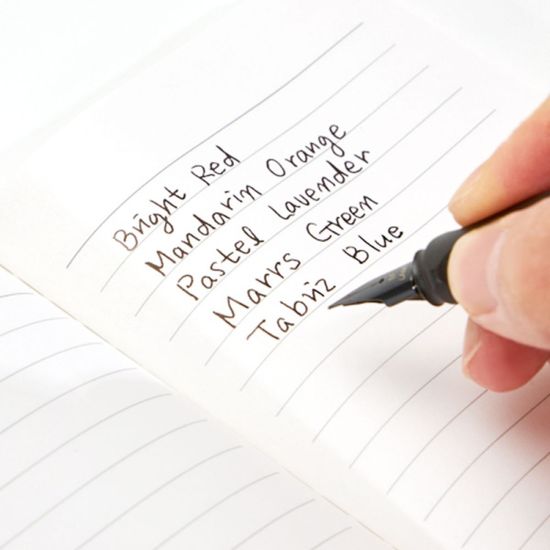 Bright Red
Mandarin Orange
Pastel Lavender
Marrs Green
Tabriz Blue